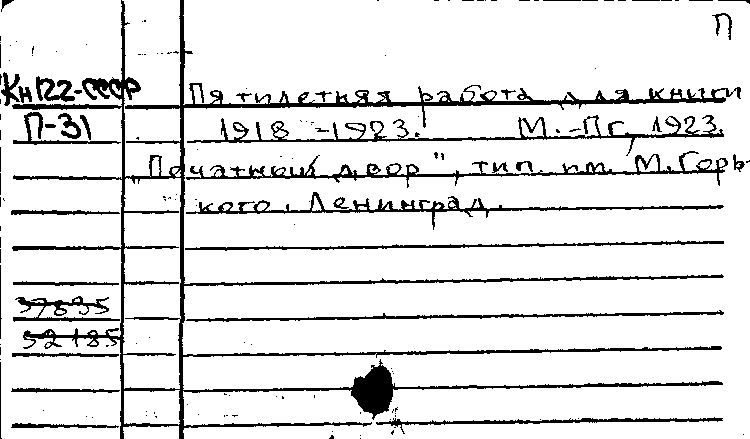 П
Кн122-СССР Пятилетняя работа для книги
П-31 1918-1923. М.-Пг, 1923.
"Печатный двор", тип. им. М. Горь-
кого. Ленинград.
37835
52185